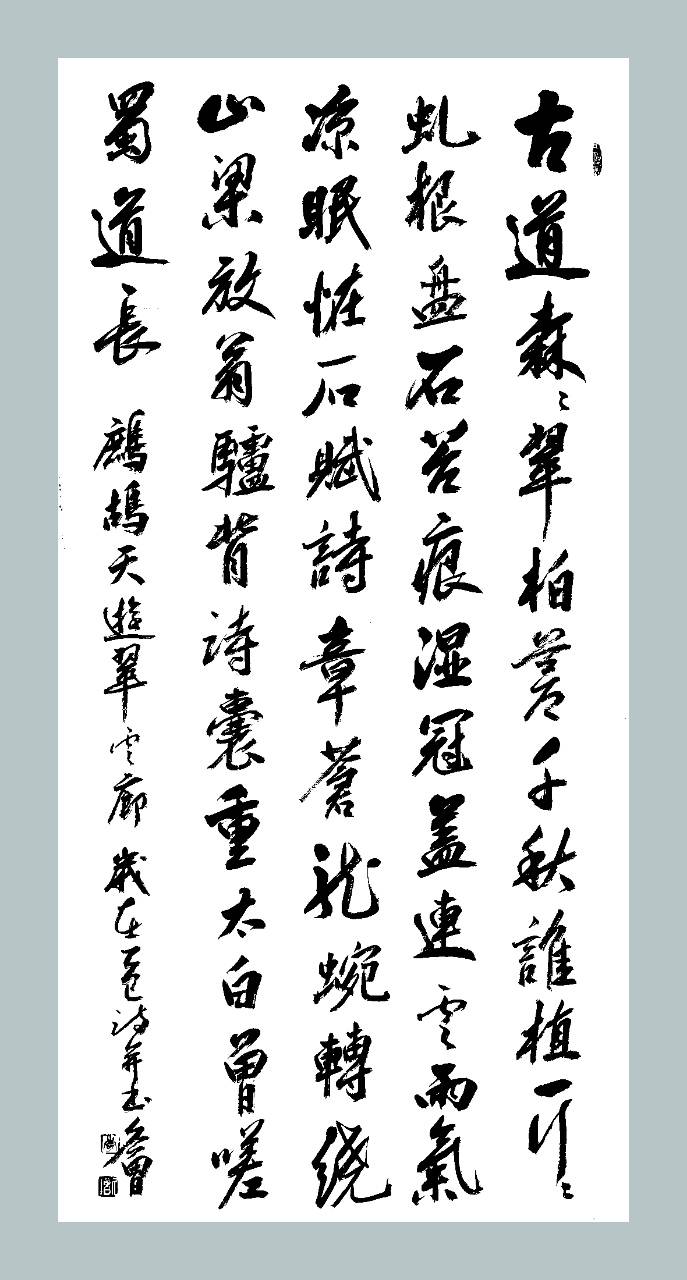 古道森々翠柏蒼千秋誰植一行々
虬根盤石苔痕湿冠蓋連雲雨氣
凉眠怪石賦詩章蒼龍蜿轉繞
山梁放翁驢背詩囊重太白曾嗟
蜀道長 鷓鴣天遊翠雲廊 歲在詩并書